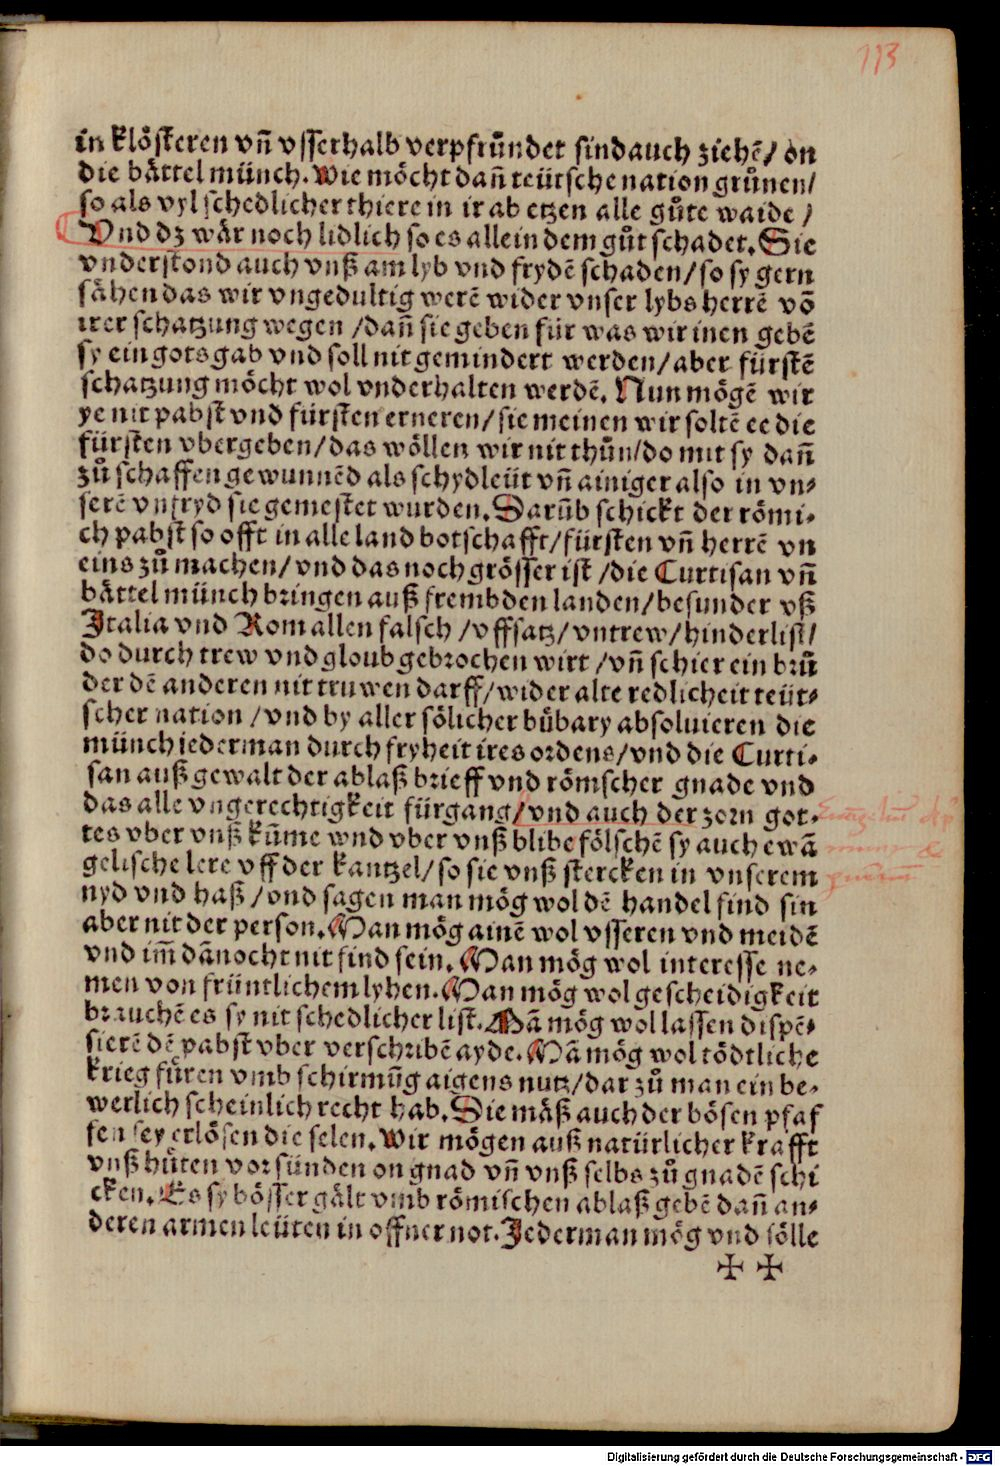 113
in klösteren vñ vsserhalb verpfrůndet sind auch ziehẽ/ on
die bättel münch. Wie möcht dañ teütsche nation grůnen/
so als vyl schedlicher thiere in ir ab etzen alle gůte waide /
Vnd dz wär noch lidlich so es allein dem gůt schadet. Sie
vnderstond auch vnß am lyb vnd frydẽ schaden/ so sy gern
sähen das wir vngedultig werẽ wider vnser lybs herrẽ võ
irer schatzung wegen /dañ sie geben für was wir inen gebẽ
sy ein gots gab vnd soll nit gemindert werden/ aber fürstẽ
schatzung möcht wol vnderhalten werdẽ. Nun mögẽ wir
ye nit pabst vnd fürsten erneren/ sie meinen wir soltẽ ee die
fürsten vbergeben/ das wöllen wir nit thůn/ do mit sy dañ
zů schaffen gewunnẽd als schydleüt vñ ainiger also in vn-
serẽ vnfryd sie gemestet wurden. Darũb schickt der römi-
ch pabst so offt in alle land botschafft/ fürsten vñ herrẽ vn
eins zů machen/ vnd das noch grösser ist /die Curtisan vñ
bättel münch bringen auß frembden landen/ besunder vß
Italia vnd Rom allen falsch /vffsatz/ vntrew/ hinderlist/
do durch trew vnd gloub gebrochen wirt /vñ schier ein brů
der dẽ anderen nit truwen darff/ wider alte redlicheit teüt-
scher nation /vnd by aller sölicher bůbary absoluieren die
münch jederman durch fryheit ires ordens/ vnd die Curti-
san auß gewalt der ablaß brieff vnd römscher gnade vnd
das alle vngerechtigkeit fürgang/ vnd auch der zorn got-
tes vber vnß kũme wnd vber vnß blibe fölschẽ sy auch ewã
gelische lere vff der kantzel/ so sie vnß stercken in vnserem
nyd vnd haß /vnd sagen man mög wol dẽ handel find sin
aber nit der person. Man mög ainẽ wol vsseren vnd meidẽ
vnd im̃ dãnocht nit find sein. Man mög wol interesse ne-
men von früntlichem lyhen. Man mög wol gescheidigkeit
brauchẽ es sy nit schedlicher list. Mã mög wol lassen dispẽ-
sierẽ dẽ pabst vber verschribẽ ayde. Mã mög wol tödtliche
krieg fůren vmb schirmũg aigens nutz/ dar zů man ein be-
werlich scheinlich recht hab. Die mäß auch der bösen pfaf
fen sey erlösen die selen. Wir mögen auß natürlicher krafft
vnß hůten vor sünden on gnad vñ vnß selbs zů gnadẽ schi
cken. Es sy bösser gält vmb römischen ablaß gebẽ dañ an-
deren armen leüten in offner not. Jederman mög vnd sölle
✠ ✠
Digitalisierung gefördert durch die Deutsche Forschungsgemeinschaft - DFG